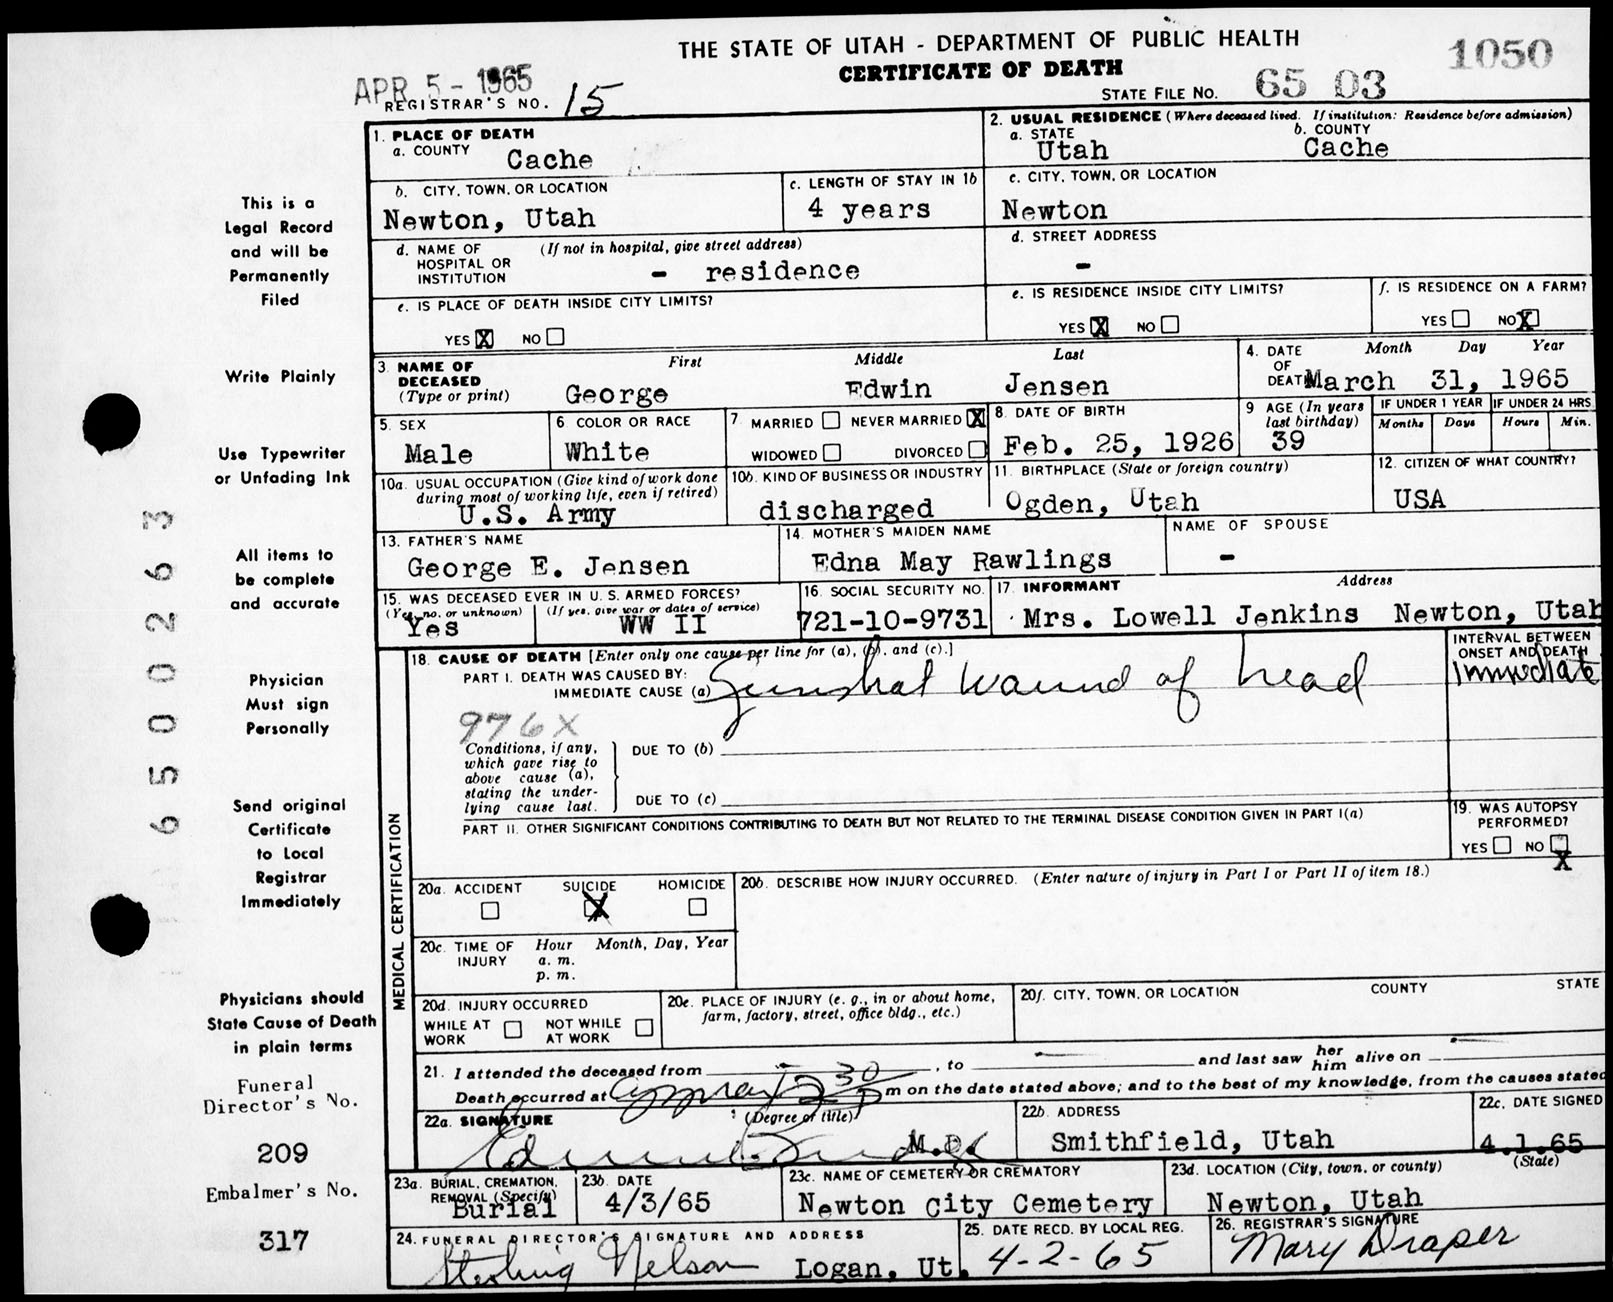 THE STATE OF UTAH - DEPARTMENT OF PUBLIC HEALTH
CERTIFICATE OF DEATH
1050
APR 5 - 1965
REGISTRAR'S NO. 15
STATE FILE NO. 65 03
1. PLACE OF DEATH
a. COUNTY Cache
2. USUAL RESIDENCE (Where deceased lived. If institution: Residence before admission)
a. STATE Utah b. COUNTY Cache
b. CITY, TOWN, OR LOCATION
Newton, Utah
c. LENGTH OF STAY IN 1b
4 years
c. CITY, TOWN, OR LOCATION
Newton
d. NAME OF HOSPITAL OR INSTITUTION (If not in hospital, give street address)
- residence
d. STREET ADDRESS
-
e. IS PLACE OF DEATH INSIDE CITY LIMITS?
YES X NO
e. IS RESIDENCE INSIDE CITY LIMITS?
YES X NO
f. IS RESIDENCE ON A FARM?
YES NO X
3. NAME OF DECEASED (Type or print)
First Middle Last
George Edwin Jensen
4. DATE OF DEATH Month Day Year
March 31, 1965
5. SEX
Male
6 COLOR OR RACE
White
7. MARRIED NEVER MARRIED X
WIDOWED DIVORCED
8. DATE OF BIRTH
Feb. 25, 1926
9 AGE (In years last birthday)
39
IF UNDER 1 YEAR
Months Days
IF UNDER 24 HRS.
Hours Min.
10a. USUAL OCCUPATION (Give kind of work done during most of working life, even if retired)
U.S. Army
10b. KIND OF BUSINESS OR INDUSTRY
discharged
11. BIRTHPLACE (State or foreign country)
Ogden, Utah
12. CITIZEN OF WHAT COUNTRY?
USA
13. FATHER'S NAME
George E. Jensen
14. MOTHER'S MAIDEN NAME
Edna May Rawlings
NAME OF SPOUSE
-
15. WAS DECEASED EVER IN U. S. ARMED FORCES?
(Yes, no, or unknown) (If yes, give war or dates of service)
Yes WW II
16. SOCIAL SECURITY NO.
721-10-9731
17. INFORMANT Address
Mrs. Lowell Jenkins Newton, Utah
18. CAUSE OF DEATH [Enter only one cause per line for (a), (b), and (c).]
PART I. DEATH WAS CAUSED BY:
IMMEDIATE CAUSE (a) Gunshot wound of head
INTERVAL BETWEEN ONSET AND DEATH
immediate
976X
Conditions, if any, which gave rise to above cause (a), stating the underlying cause last.
DUE TO (b)
DUE TO (c)
PART II. OTHER SIGNIFICANT CONDITIONS CONTRIBUTING TO DEATH BUT NOT RELATED TO THE TERMINAL DISEASE CONDITION GIVEN IN PART I(a)
19. WAS AUTOPSY PERFORMED?
YES NO X
MEDICAL CERTIFICATION
20a. ACCIDENT SUICIDE HOMICIDE
X
20b. DESCRIBE HOW INJURY OCCURRED. (Enter nature of injury in Part I or Part II of item 18.)
20c. TIME OF INJURY Hour Month, Day, Year
a. m.
p. m.
20d. INJURY OCCURRED
WHILE AT WORK NOT WHILE AT WORK
20e. PLACE OF INJURY (e. g., in or about home, farm, factory, street, office bldg., etc.)
20f. CITY, TOWN, OR LOCATION COUNTY STATE
21. I attended the deceased from - , to - and last saw her him alive on -
Death occurred at approx 2 30 P m on the date stated above; and to the best of my knowledge, from the causes stated
22a. SIGNATURE (Degree or title)
M.D.
22b. ADDRESS
Smithfield, Utah
22c. DATE SIGNED
4.1.65
23a. BURIAL, CREMATION, REMOVAL (Specify)
Burial
23b. DATE
4/3/65
23c. NAME OF CEMETERY OR CREMATORY
Newton City Cemetery
23d. LOCATION (City, town, or county) (State)
Newton, Utah
24. FUNERAL DIRECTOR'S SIGNATURE AND ADDRESS
Sterling Nelson Logan, Ut.
25. DATE RECD. BY LOCAL REG.
4-2-65
26. REGISTRAR'S SIGNATURE
Mary Draper
This is a
Legal Record
and will be
Permanently
Filed
Write Plainly
Use Typewriter
or Unfading Ink
All items to
be complete
and accurate
Physician
Must sign
Personally
Send original
Certificate
to Local
Registrar
Immediately
Physicians should
State Cause of Death
in plain terms
Funeral
Director's No.
209
Embalmer's No.
317
6500263